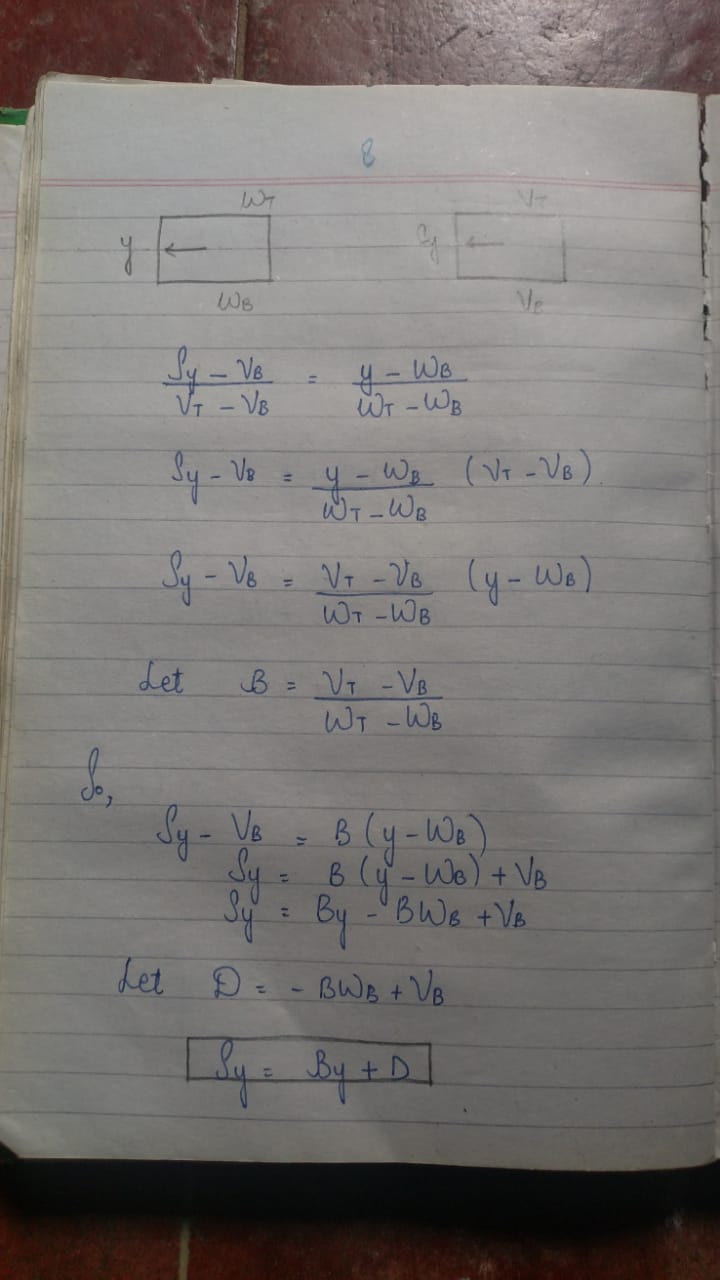 8
WT VT
y Sy
WB VB
Sy - VB / VT - VB = y - WB / WT - WB
Sy - VB = y - WB / WT - WB (VT - VB)
Sy - VB = VT - VB / WT - WB (y - WB)
Let B = VT - VB / WT - WB
So,
Sy - VB = B (y - WB)
Sy = B (y - WB) + VB
Sy = By - BWB + VB
Let D = - BWB + VB
Sy = By + D